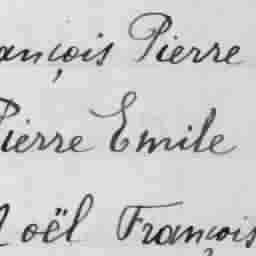 ançois Pierre
Pierre Emile
Noël François